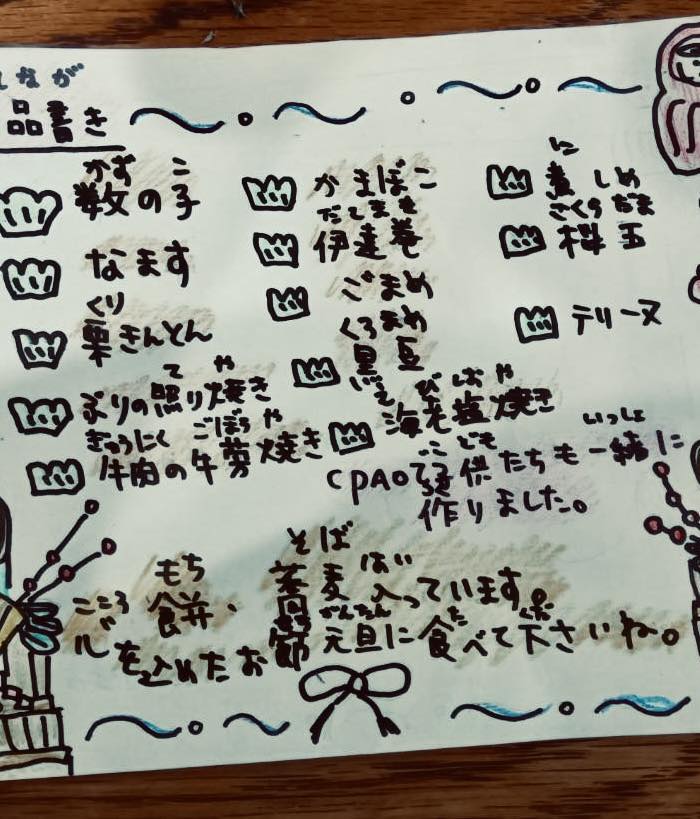 しなが
品書き
かず こ
数の子
なます
くり
栗きんとん
て や
ぶりの照り焼き
ぎゅうにく ごぼう や
牛肉の牛蒡焼き
かまぼこ
だてまき
伊達巻
ごまめ
くろまめ
黒豆
えびしおや
海老塩焼き
に
煮しめ
さくらだま
桜玉
テリーヌ
こ ども いっしょ
CPAOで子供たちも一緒に
作りました。
もち そば はい
餅、蕎麦入っています。
こころ がんたん た くだ
心を込めたお節元旦に食べて下さいね。